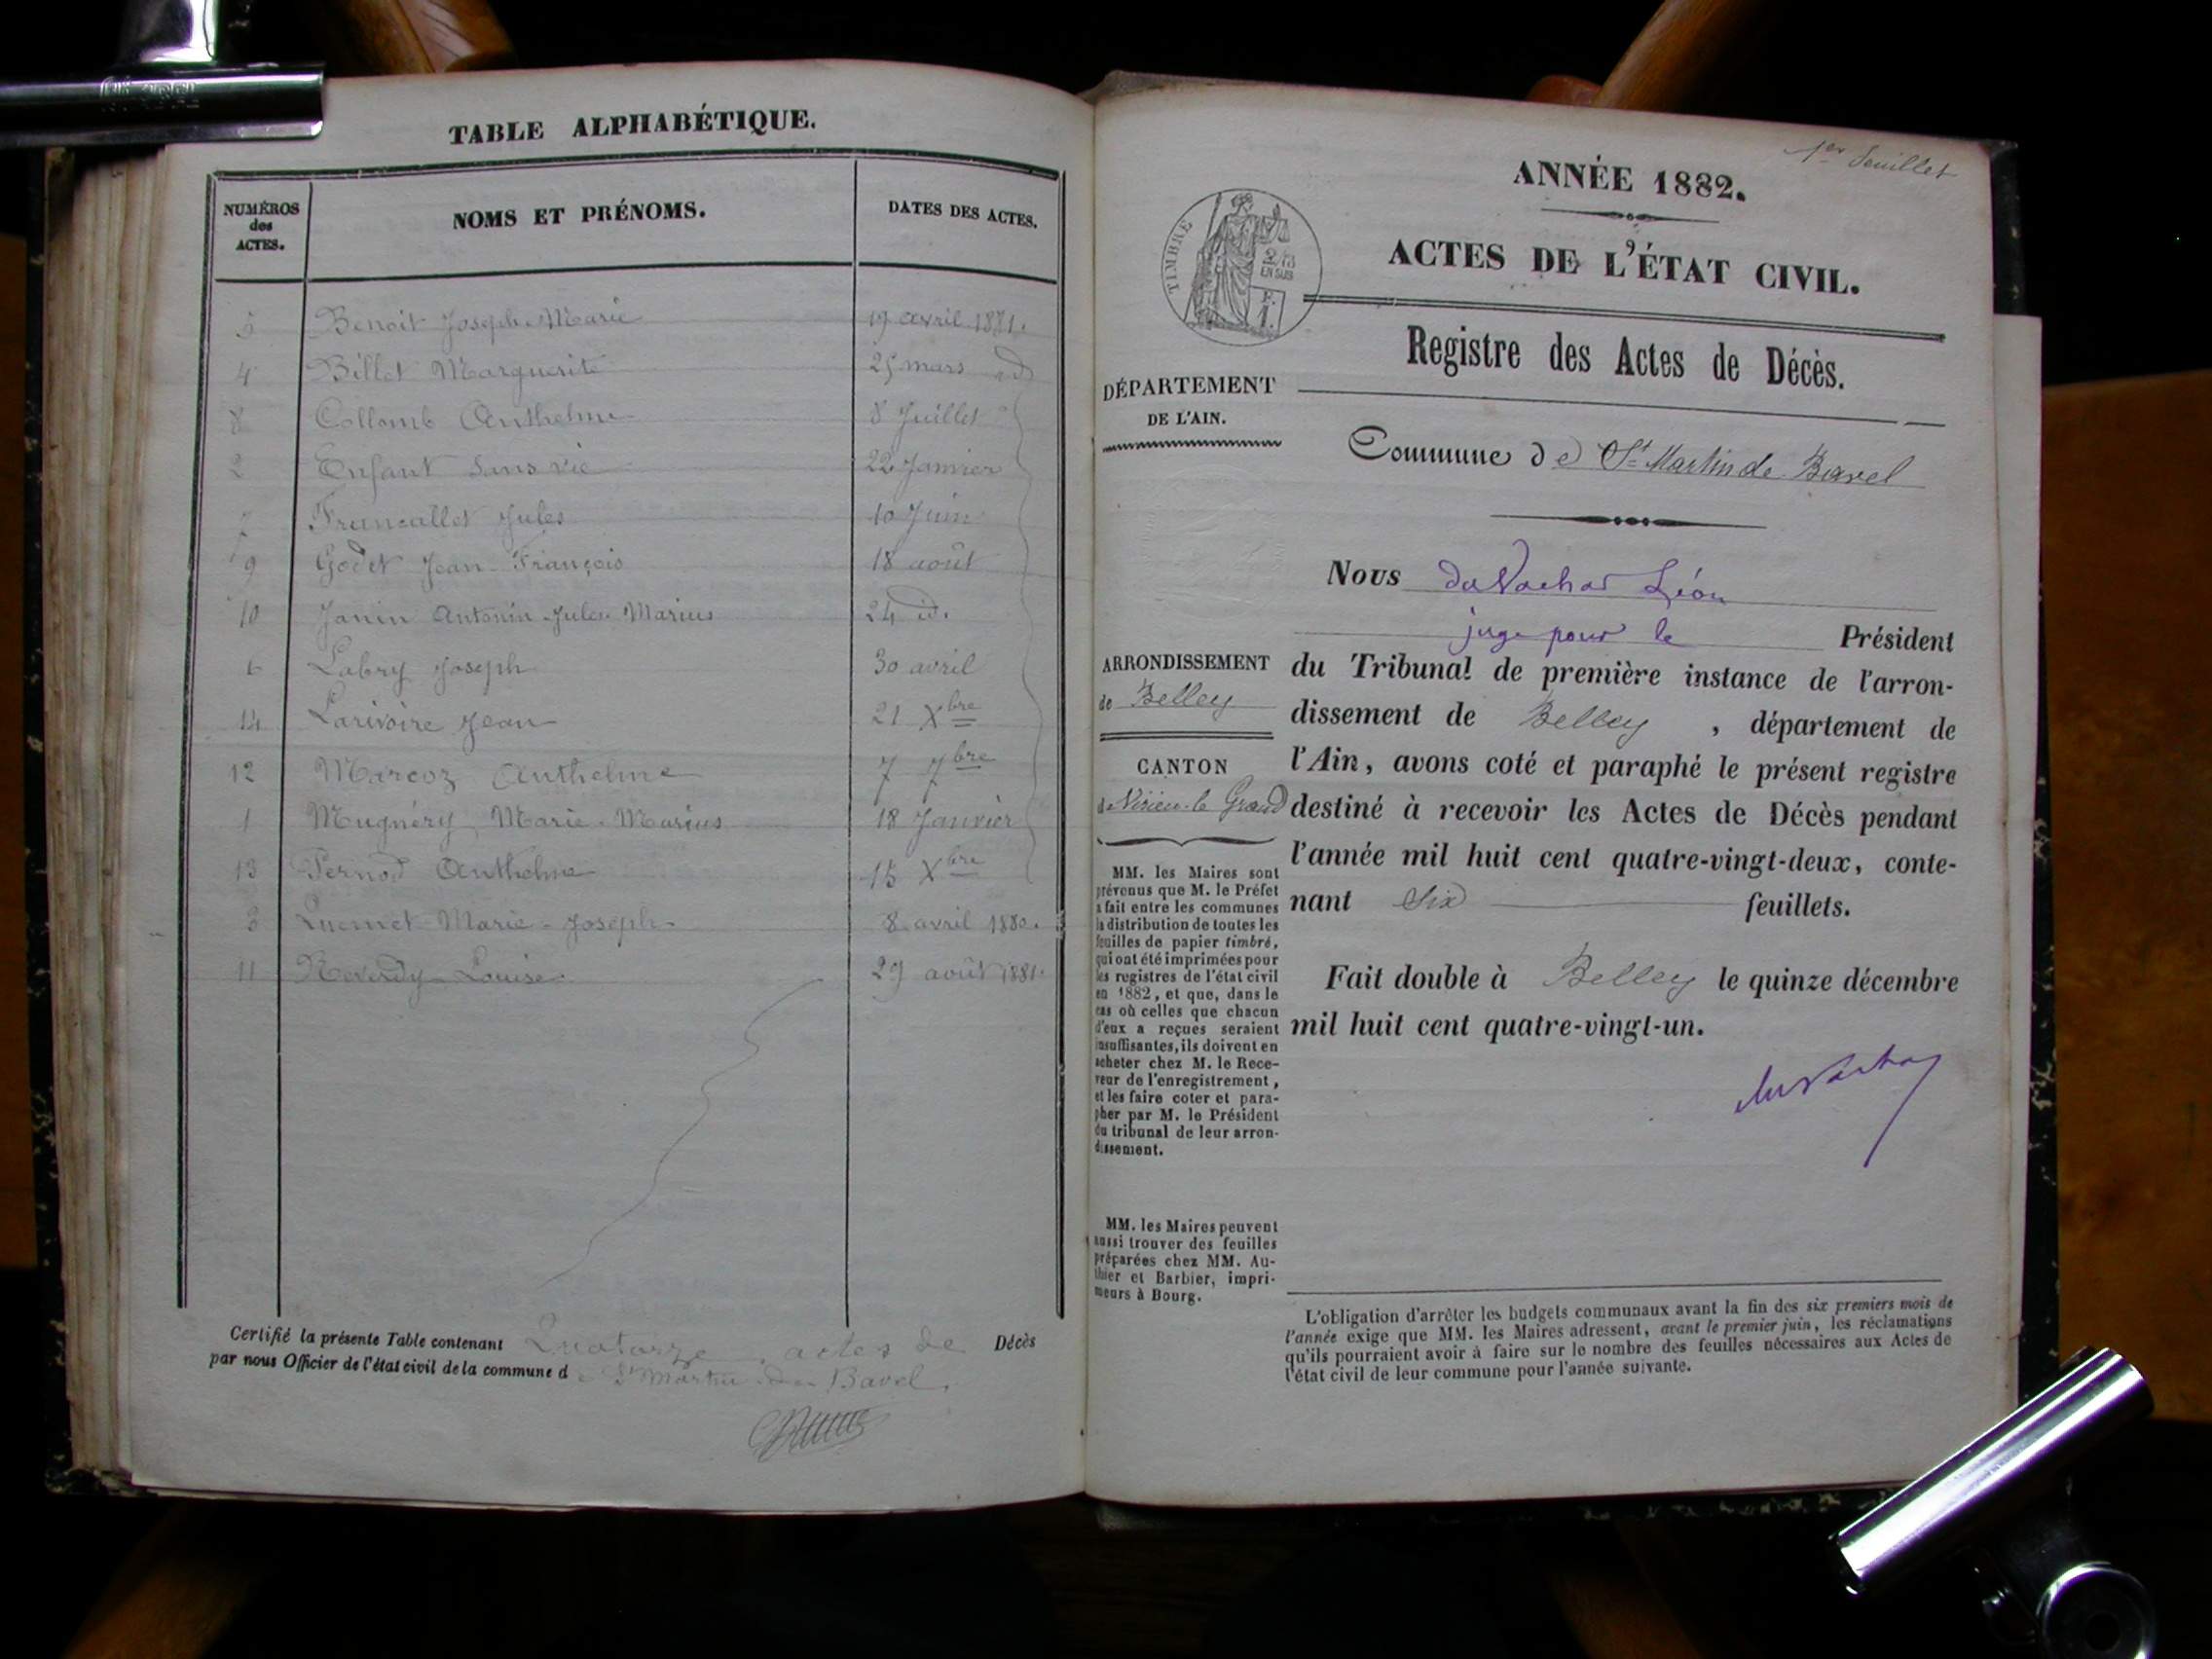 TABLE ALPHABÉTIQUE.
NUMÉROS
des
ACTES.
NOMS ET PRÉNOMS.
DATES DES ACTES.
5 Benoit Joseph-Marie 19 avril 1881.
4 Billet Marguerite 25 mars id
8 Collomb Anthelme 8 Juillet
2 Enfant sans vie 22 Janvier
7 Jules 10 Juin
9 Godet Jean-François 18 août
10 Janin Antonin-Jules-Marius 24 id.
6 Labry Joseph 30 avril
14 Larivoire Jean 21 Xbre
12 Marcoz Anthelme 7 7bre
1 Mugnéry Marie-Marius 18 Janvier
13 Pernod Anthelme 15 Xbre
3 Marie-Joseph 8 avril 1880.
11 Reverdy Louise 29 août 1881.
Certifié la présente Table contenant Quatorze actes de Décès
par nous Officier de l'état civil de la commune de St Martin de Bavel.
1er feuillet
ANNÉE 1882.
TIMBRE
2/10
EN SUS
F.
1.
ACTES DE L'ÉTAT CIVIL.
Registre des Actes de Décès.
DÉPARTEMENT
DE L'AIN.
Commune de St Martin de Bavel
Nous Léon
juge pour le Président
du Tribunal de première instance de l'arron-
dissement de Belley, département de
l'Ain, avons coté et paraphé le présent registre
destiné à recevoir les Actes de Décès pendant
l'année mil huit cent quatre-vingt-deux, conte-
nant Six feuillets.
Fait double à Belley le quinze décembre
mil huit cent quatre-vingt-un.
ARRONDISSEMENT
de Belley
CANTON
de Virieu-le Grand
MM. les Maires sont
prévenus que M. le Préfet
a fait entre les communes
la distribution de toutes les
feuilles de papier timbré,
qui ont été imprimées pour
les registres de l'état civil
en 1882, et que, dans le
cas où celles que chacun
d'eux a reçues seraient
insuffisantes, ils doivent en
acheter chez M. le Rece-
veur de l'enregistrement,
et les faire coter et para-
pher par M. le Président
du tribunal de leur arron-
dissement.
MM. les Maires peuvent
aussi trouver des feuilles
préparées chez MM. Au-
thier et Barbier, impri-
meurs à Bourg.
L'obligation d'arrêter les budgets communaux avant la fin des six premiers mois de
l'année exige que MM. les Maires adressent, avant le premier juin, les réclamations
qu'ils pourraient avoir à faire sur le nombre des feuilles nécessaires aux Actes de
l'état civil de leur commune pour l'année suivante.